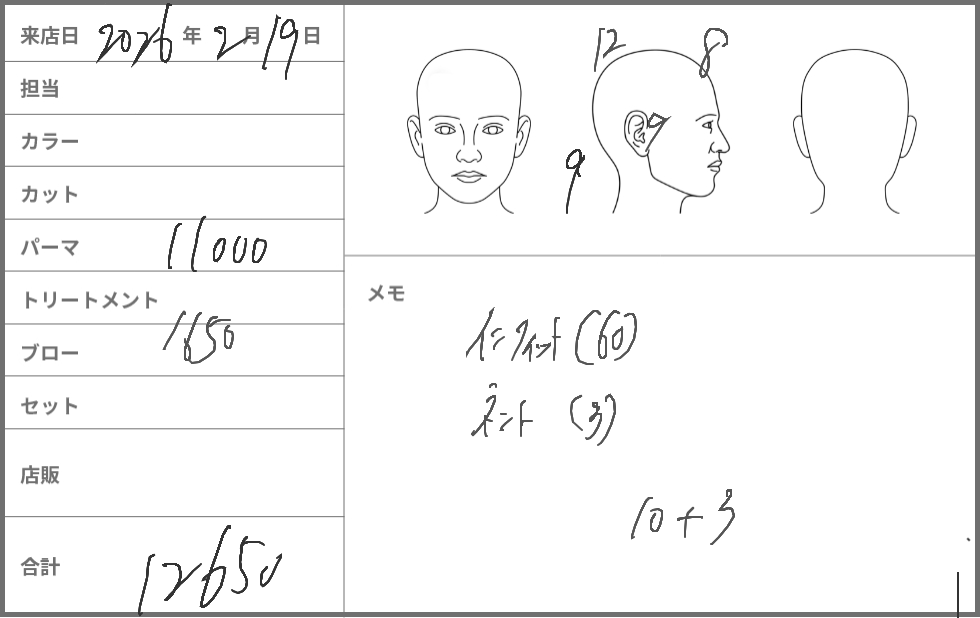 来店日 2026 年 2 月 19 日
担当
カラー
カット
パーマ 11000
トリートメント
ブロー 1650
セット
店販
合計 12650
12 8
9
9
メモ
(60)
(3)
10+3